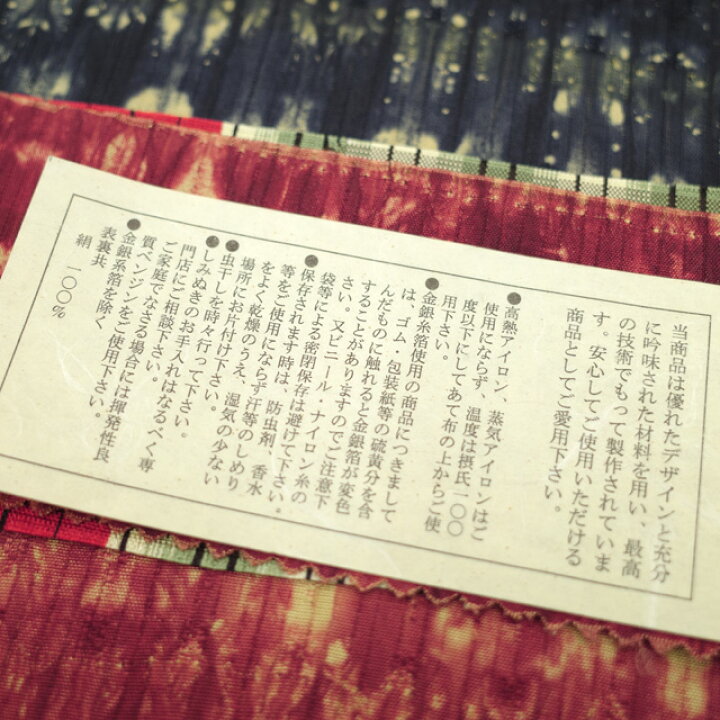 当商品は優れたデザインと充分
に吟味された材料を用い、最高
の技術でもって製作されていま
す。安心してご使用いただける
商品としてご愛用下さい。
●高熱アイロン、蒸気アイロンはご
使用にならず、温度は摂氏一〇〇
度以下にしてあて布の上からご使
用下さい。
●金銀糸箔使用の商品につきまして
は、ゴム・包装紙等の硫黄分を含
んだものに触れると金銀箔が変色
することがありますのでご注意下
さい。又ビニール・ナイロン糸の
袋等による密閉保存は避けて下さい。
●保存されます時は、防虫剤、香水
等をご使用にならず汗等のしめり
をよく乾燥のうえ、湿気の少ない
場所にお片付け下さい。
●虫干しを時々行って下さい。
●しみぬきのお手入れはなるべく専
門店にご相談下さい。
ご家庭でなさる場合には揮発性良
質ベンジンをご使用下さい。
●金銀糸箔を除く
表裏共
絹 一〇〇%